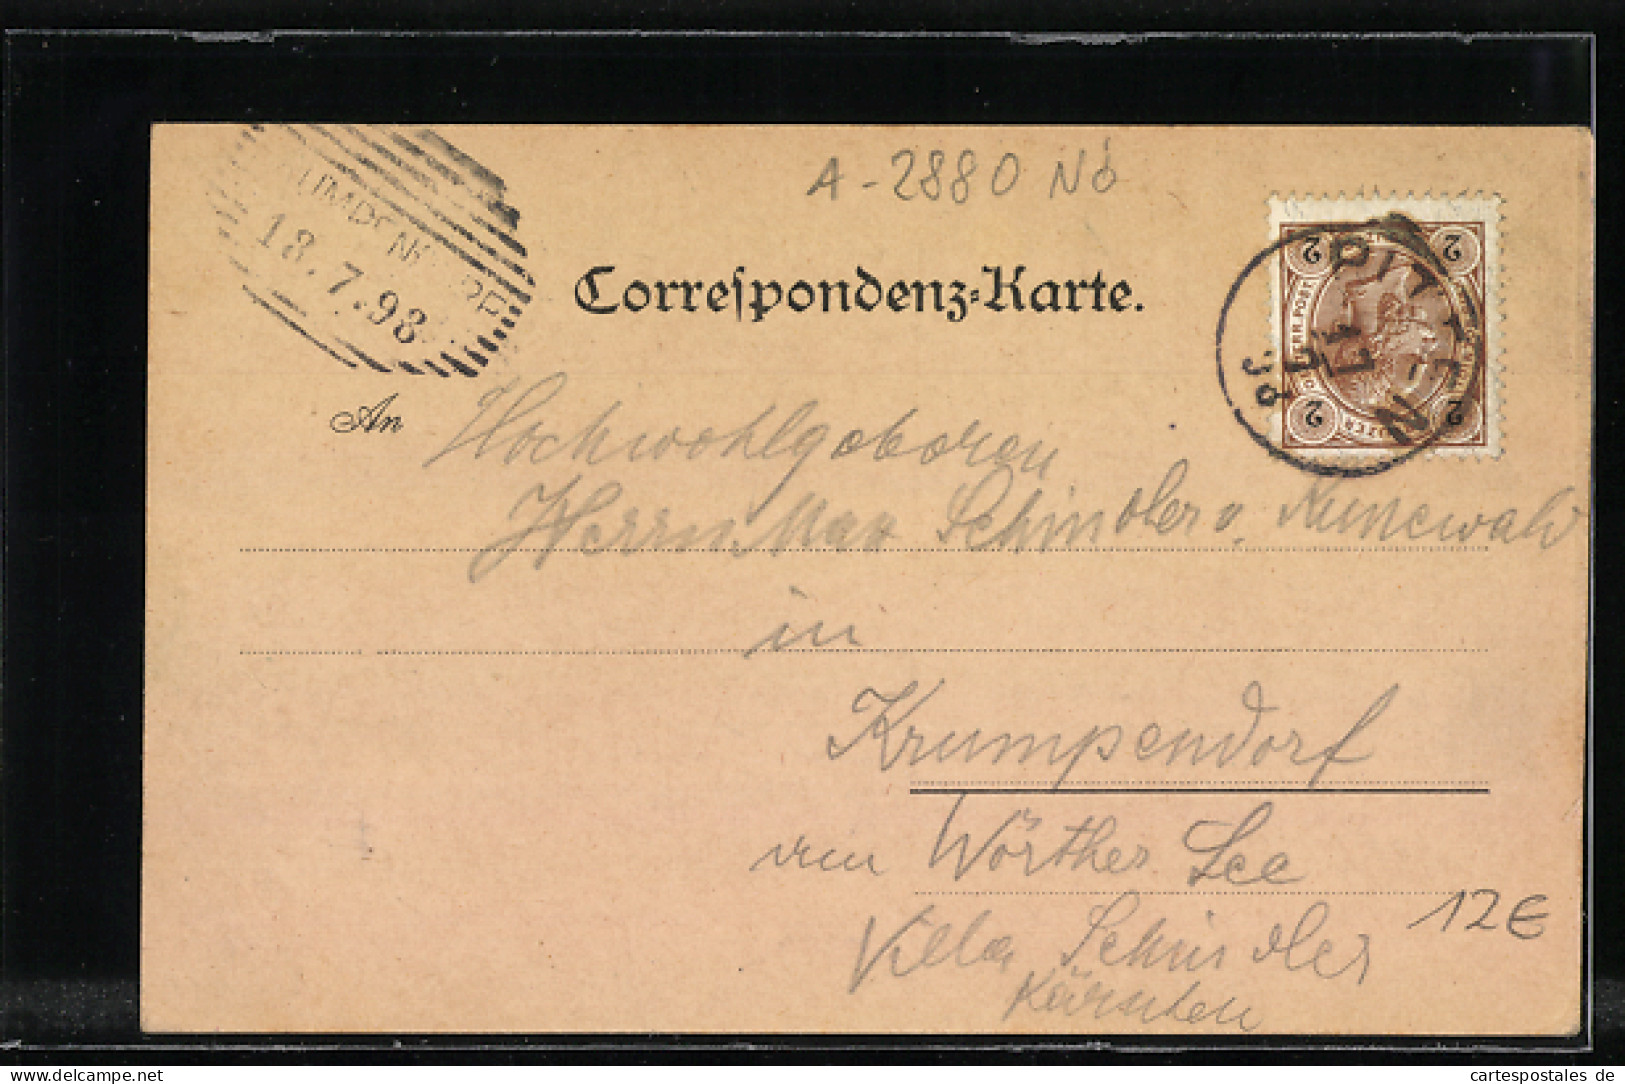 A-2880 Nö
18.7.98
Correspondenz-Karte.
DITTEN
17
7
98
2 2
2 2
An Hochwohlgeboren
Herrn Max Schindler v. Kunewald
in
Krumpendorf
am Wörther See
Villa Schindler
Kärnten
12€
delcampe.net
cartespostales de